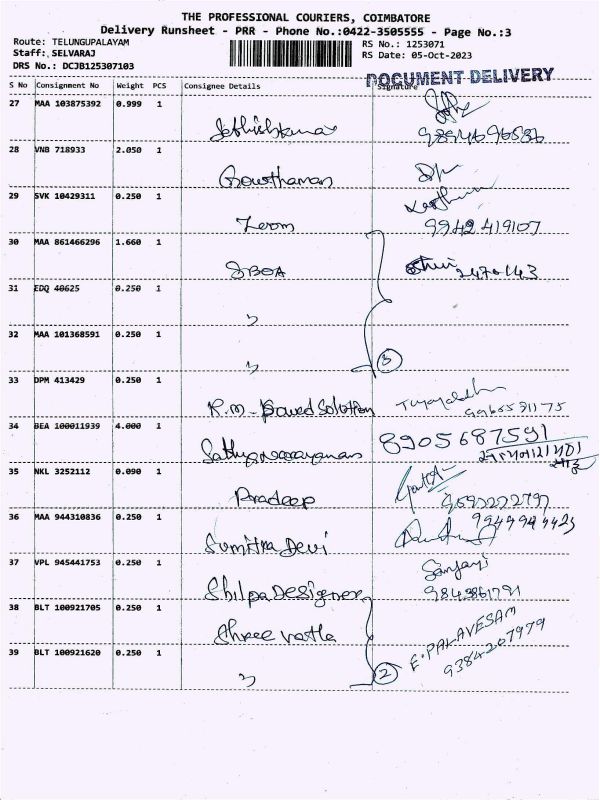 THE PROFESSIONAL COURIERS, COIMBATORE
Delivery Runsheet - PRR - Phone No.:0422-3505555 - Page No.:3
Route: TELUNGUPALAYAM
Staff: SELVARAJ
DRS No.: DCJB125307103
RS No.: 1253071
RS Date: 05-Oct-2023
DOCUMENT DELIVERY
S No Consignment No Weight PCS Consignee Details Signature
27 MAA 103875392 0.999 1
Sathishkumar
28 VNB 718933 2.050 1
Gowthaman
29 SVK 10429311 0.250 1
Zoom 9942419107
30 MAA 861466296 1.660 1
SBOA 2470143
31 EDQ 40625 0.250 1
"
32 MAA 101368591 0.250 1
" 3
33 DPM 413429 0.250 1
R.M-
34 BEA 100011939 4.000 1
8905687591
Sathyanarayanan
35 NKL 3252112 0.090 1
Pradeep
36 MAA 944310836 0.250 1
Sumitra Devi
37 VPL 945441753 0.250 1
Sanjayi
Shilpa Designer
38 BLT 100921705 0.250 1
Shree vatla
E.PALAVESAM
9384207979
39 BLT 100921620 0.250 1
" 2